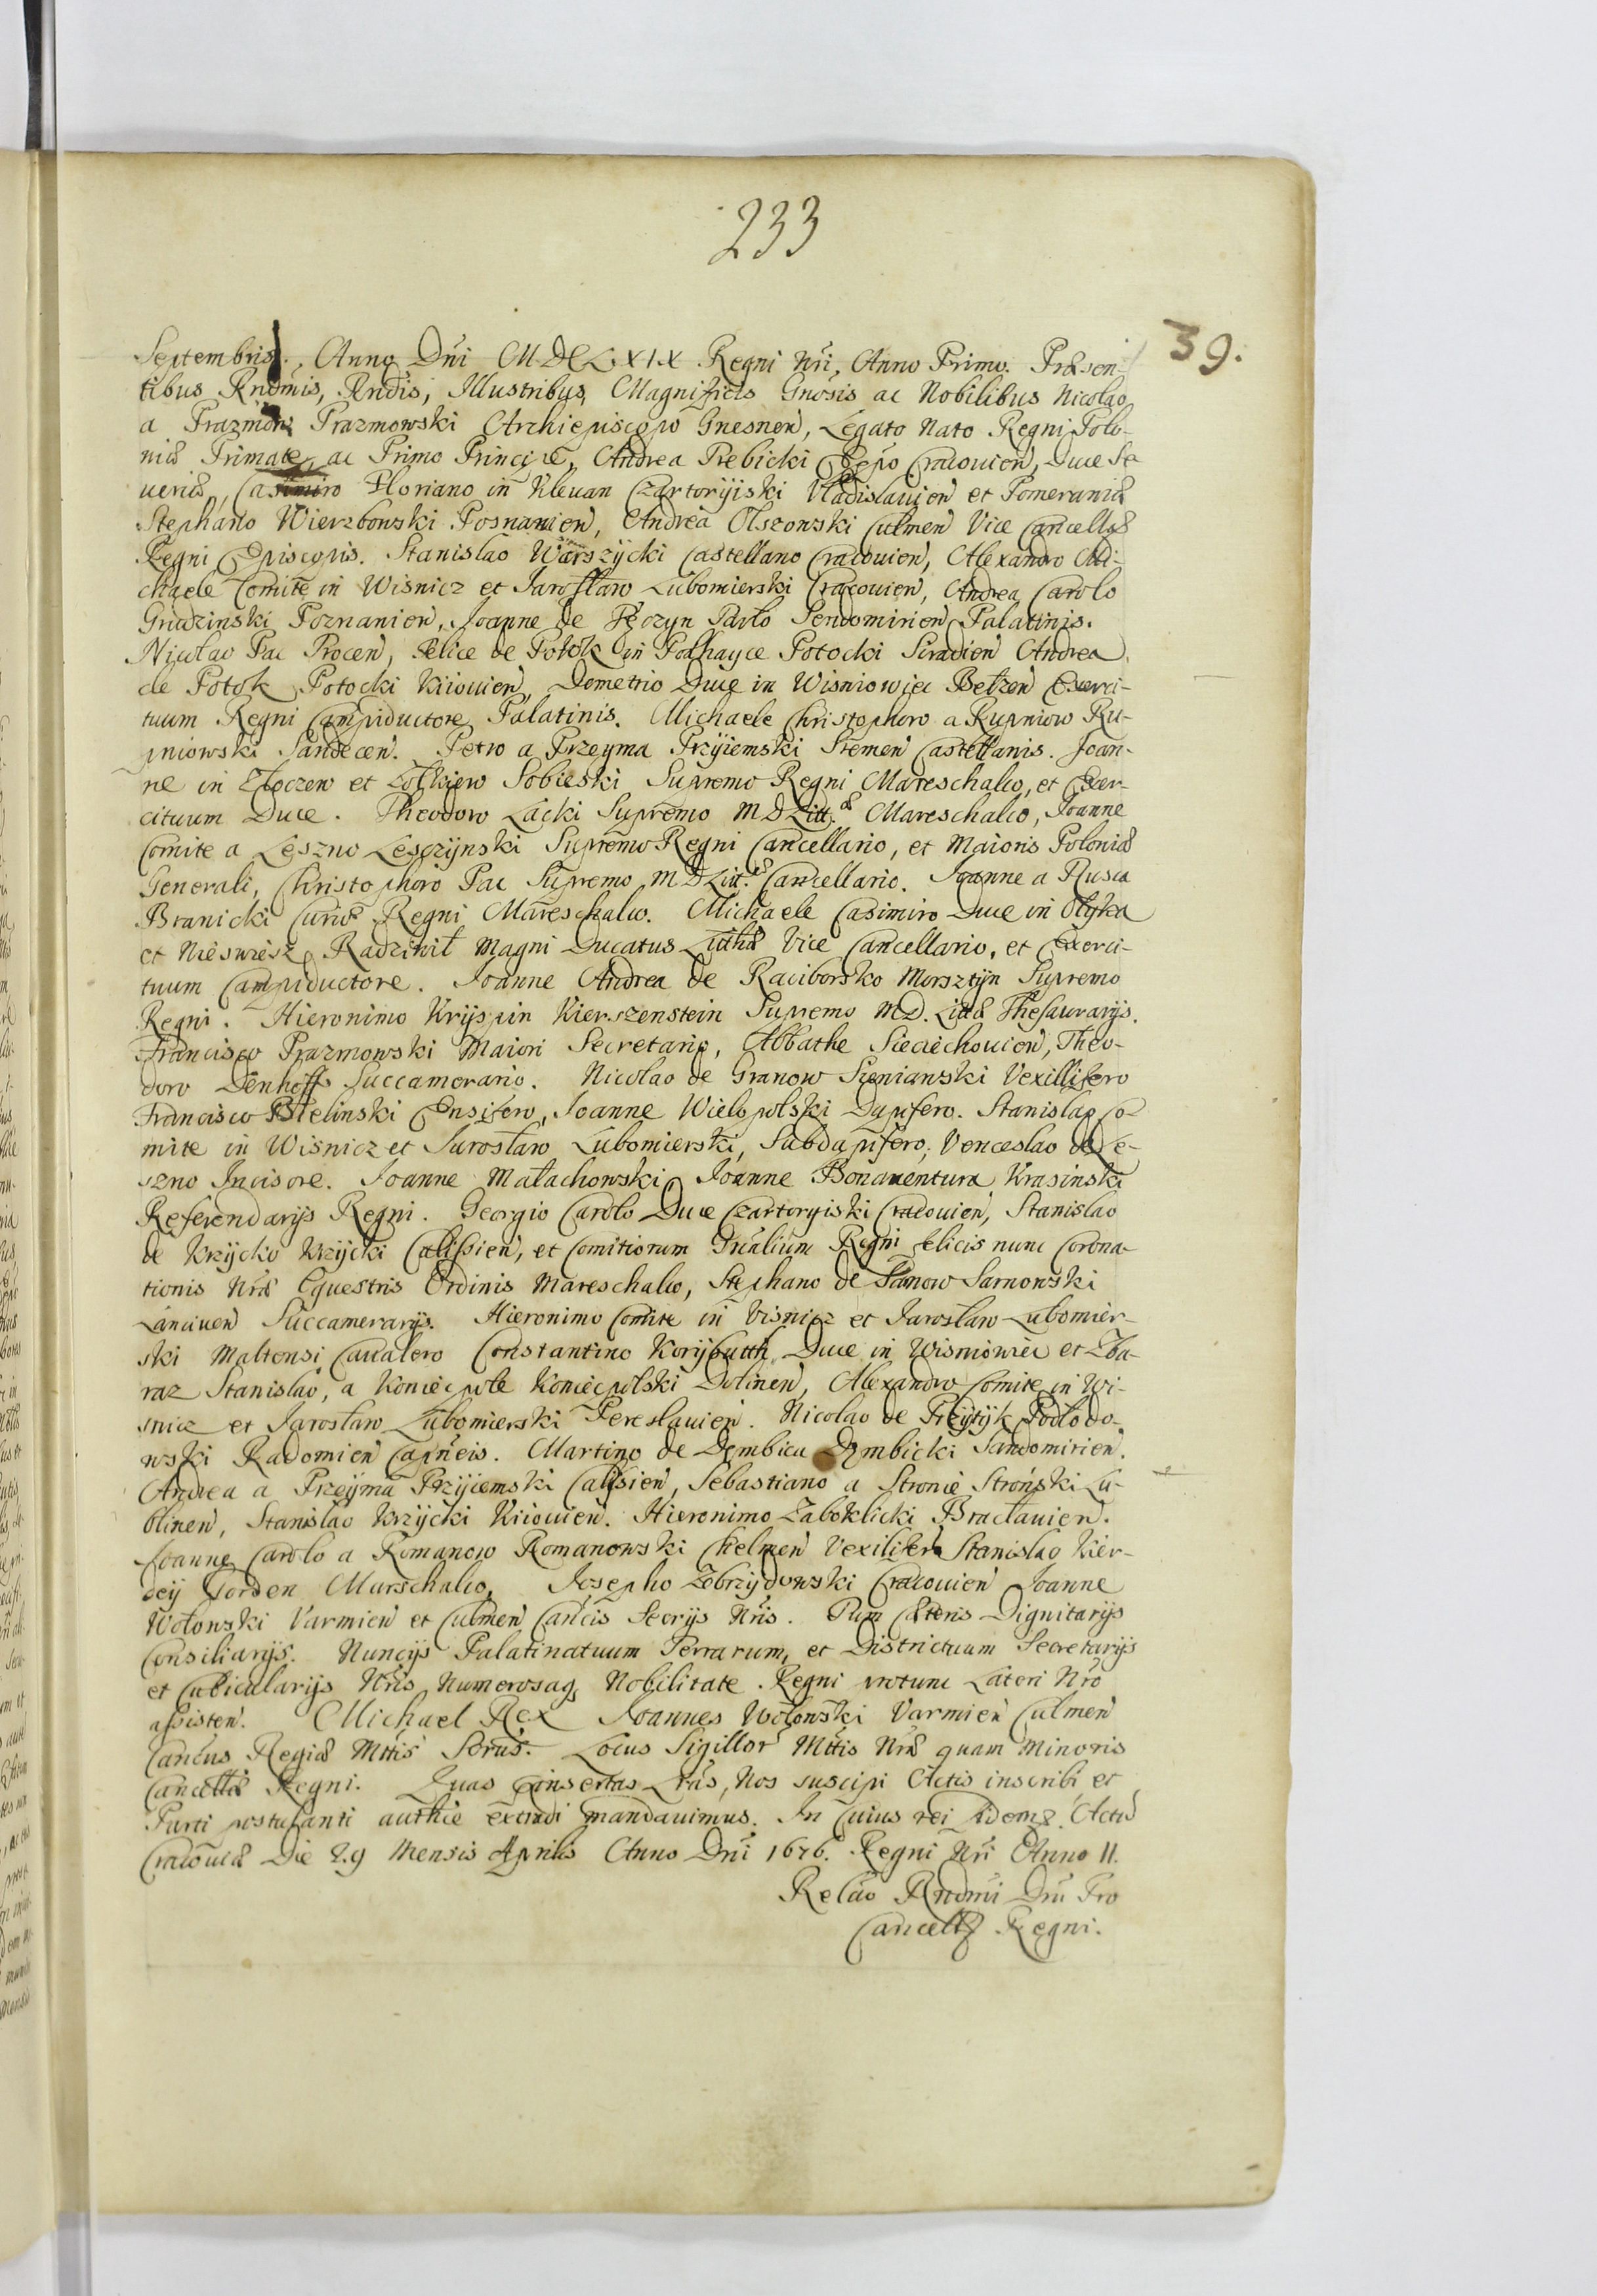 233
39.
Septembris. Anno Dñi MDCLXIX Regni Nrĩ, Anno Primo. Præsen-
tibus Rndmis, Rndis, Illustribus, Magnificis Gnosis ac Nobilibus Nicolao
a Prazmow Prazmowski Archiepiscopo Gnesnen, Legato Nato Regni Polo-
niæ Primate, ac Primo Principe, Andrea Trebicki Eppo Cracovien, Duce Se
veriæ, Casimiro Floriano in Klevan Czartoryiski Vladislavien et Pomeraniæ
Stephano Wierzbowski Posnanien, Andrea Olszowski Culmen Vice Cancellæ
Regni Episcopis. Stanislao Warszycki Castellano Cracovien, Alexandro Mi-
chaele Comite in Wisnicz et Jarosław Lubomierski Cracovien, Andrea Carolo
Grudzinski Poznanien, Joanne de Pęczyn Sarło Sendomirien Palatinis.
Nicolao Pac Trocen, Felice de Potok in Podhayce Potocki Siradien Andrea
de Potok Potocki Kiiovien, Demetrio Duce in Wisniowiec Bełzen Exerci-
tuum Regni Campiductore Palatinis. Michaele Christophoro a Rupniow Ru-
pniowski Sandecen. Petro a Przeyma Przyiemski Sremen Castellanis. Joan-
ne in Złoczew et Zołkiew Sobieski Supremo Regni Mareschalco, et Exer-
cituum Duce. Theodoro Lacki Supremo M D Litt.æ Mareschalco, Joanne
Comite a Leszno Lesczijnski Supremo Regni Cancellario, et Maioris Poloniæ
Generali, Christophoro Pac Supremo M D Litt.æ Cancellario. Joanne a Rusca
Branicki Curiæ Regni Mareschalco. Michaele Casimiro Duce in Ołyka
et Nieswiesz Radziwił Magni Ducatus Litthæ Vice Cancellario, et Exerci-
tuum Campiductore. Joanne Andrea de Raciborsko Morsztijn Supremo
Regni. Hieronimo Krijspin Kierszenstein Supremo M.D. Littæ Thesaurarijs.
Francisco Prazmowski Maiori Secretario, Abbathe Sieciechovien, Theo-
doro Denhoff Succamerario. Nicolao de Granow Sieniawski Vexillifero
Francisco Bielinski Ensifero, Joanne Wielopolski Dapifero. Stanislao Co-
mite in Wisnicz et Jarosław Lubomierski, Subdapifero, Venceslao de Le-
szno Incisore. Joanne Małachowski Joanne Bonaventura Krasinski
Referendarijs Regni. Georgio Carolo Duce Czartoryiski Cracovien, Stanislao
de Krzycko Krzijcki Calissien, et Comitiorum Grãlium Regni felicis nunc Corona-
tionis Nræ Equestris Ordinis Mareschalco, Stephano de Sarnow Sarnowski
Lancicien Succamerarijs. Hieronimo Comite in Visnicz et Jarosław Lubomier-
ski Maltensi Cavalero Constantino Korijbutth Duce in Wisniowiec et Zba-
raz Stanislao, a Koniecpole Koniecpolski Dolinen, Alexandro Comite in Wi-
snicz et Jarosław Lubomierski Pereslavien. Nicolao de Przijtijk Podlodo-
wski Radomien Capneis. Martino de Dembica Dembicki Sandomirien.
Andrea a Przeijma Przijiemski Calisien, Sebastiano a Stronie Stroński Lu-
blinen, Stanislao Krzijcki Kiiovien. Hieronimo Zaboklicki Bracłavien.
Joanne Carolo a Romanow Romanowski Chelmen Vexiliferis Stanislao Kier-
deij Gorden Murschalco, Josepho Zebrzijdowski Cracovien Joanne
Wołowski Varmien et Culmen Cancis Secrijs Nris. Tum Cæteris Dignitarijs
Consiliarijs. Nuncijs Palatinatuum Terrarum, et Districtuum Secretarijs
et Cubicularijs Nris Numerosaq Nobilitate Regni protunc Lateri Nro
assisten. Michael Rex Joannes Wołowski Varmien Culmen
Cancus Regiæ Mttis Secrus. Locus Sigillor Mttis Nræ quam Minoris
Cancellæ Regni. Quas insertas Lras, Nos suscipi Actis inscribi et
Parti postulanti authce extradi mandavimus. In Cuius rei fidem. Actu
Cracoviæ Die 29 Mensis Aprilis Anno Dni 1676. Regni Nri Anno II.
Relão Rndmi Dni Pro
Cancell Regni.